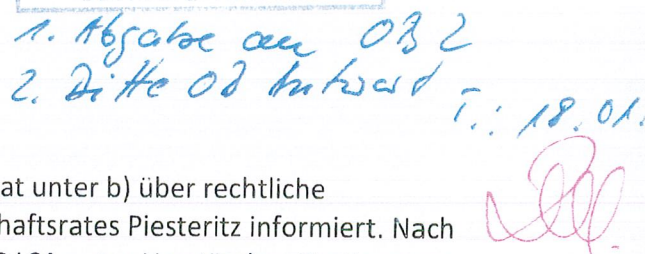 1. Abgabe an OB 2
2. Bitte OB Antwort
T.: 18.01.
at unter b) über rechtliche
haftsrates Piesteritz informiert. Nach